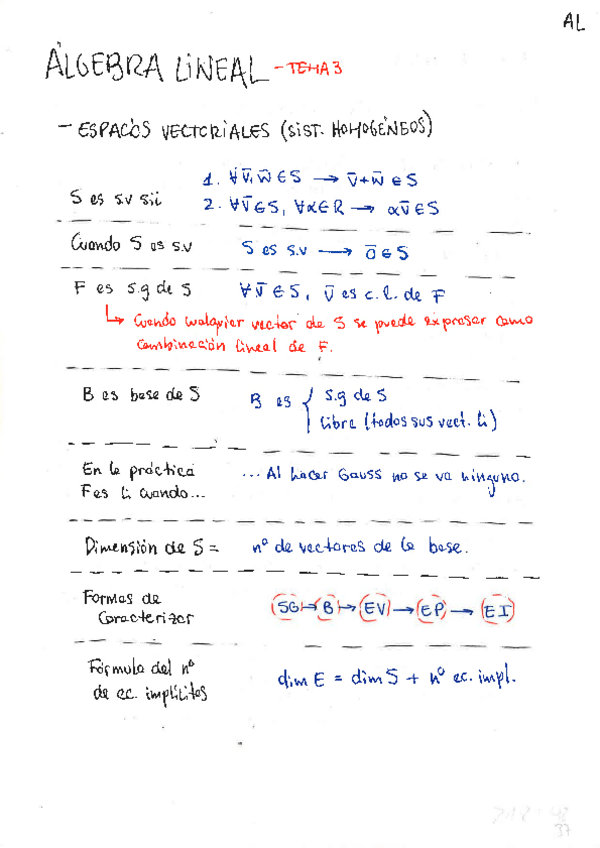 AL
ÁLGEBRA LINEAL - TEMA 3
- ESPACIOS VECTORIALES (SIST. HOMOGÉNEOS)
S es s.v sii
1. ∀v̄,w̄ ∈ S → v̄+w̄ ∈ S
2. ∀v̄ ∈ S, ∀α∈R → αv̄ ∈ S
Cuando S es s.v S es s.v → ō ∈ S
F es s.g de S ∀v̄ ∈ S, v̄ es c.l. de F
↳ Cuando cualquier vector de S se puede expresar como
combinación lineal de F.
B es base de S B es { s.g de S
libre (todos sus vect. li)
En la práctica ... Al hacer Gauss no se va ninguno.
F es li cuando...
Dimensión de S = nº de vectores de la base.
Formas de
Caracterizar
SG → B → EV → EP → EI
Fórmula del nº
de ec. implícitas
dim E = dim S + nº ec. impl.
37